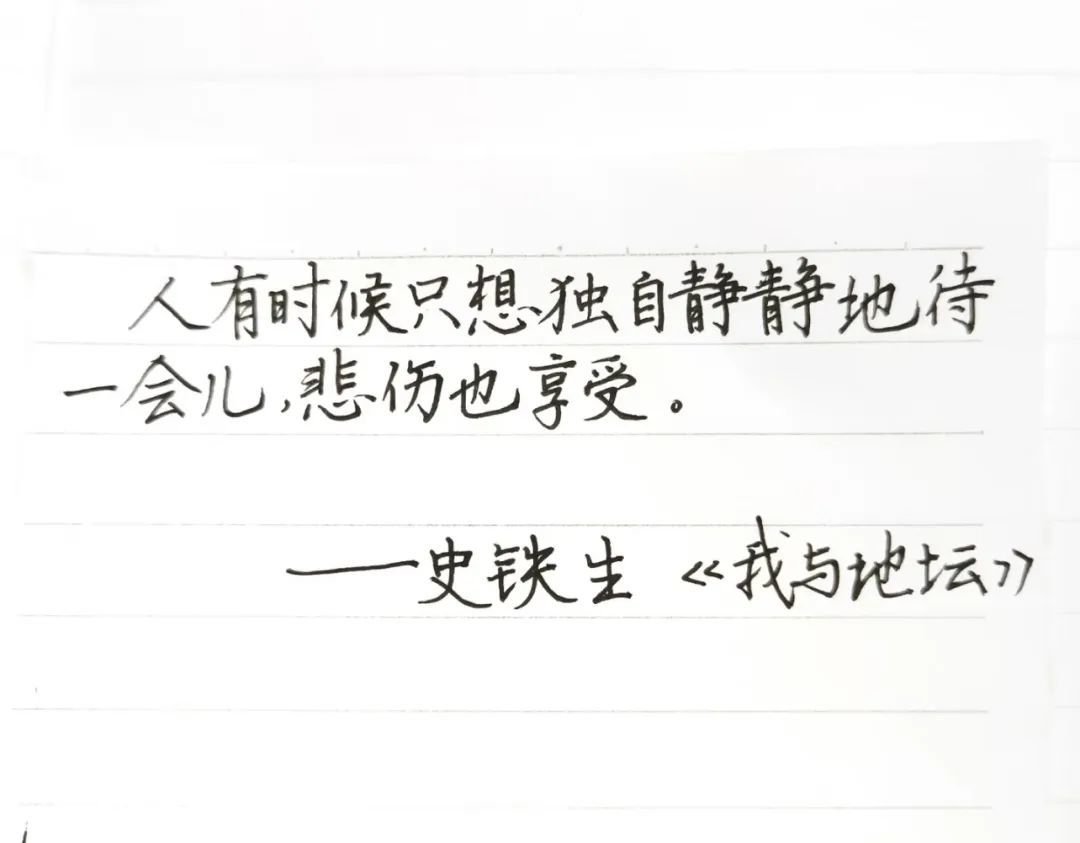 人有时候只想独自静静地待
一会儿,悲伤也享受。
——史铁生 《我与地坛》